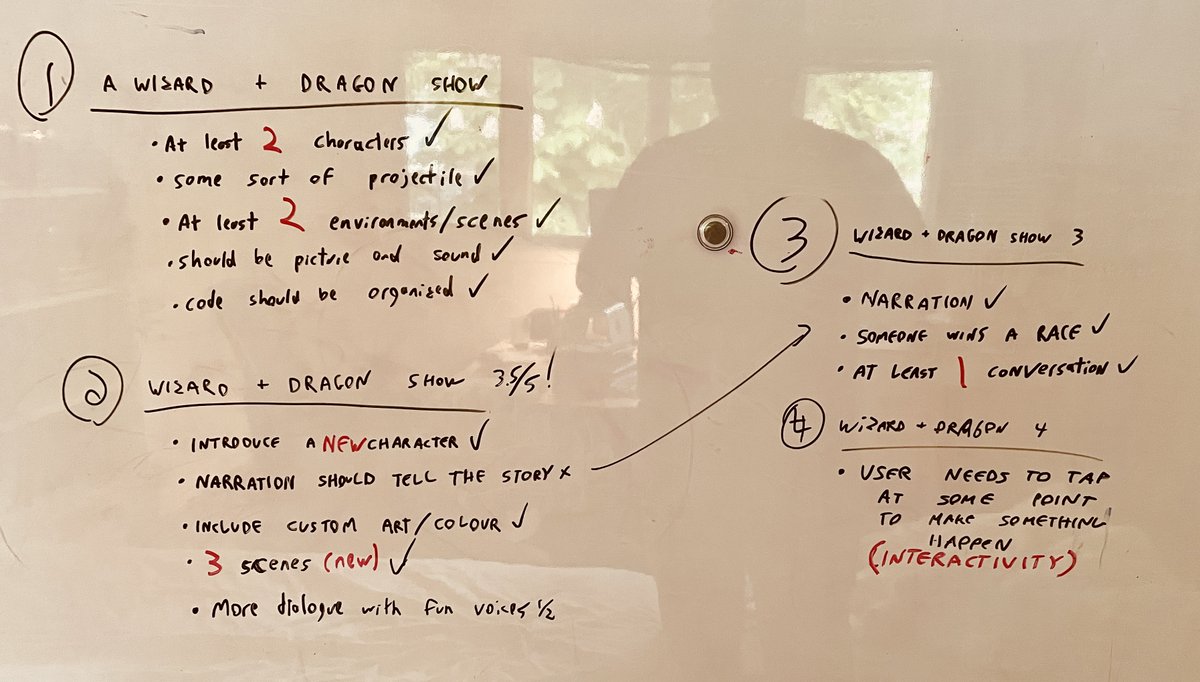 1 A WIZARD + DRAGON SHOW
• At least 2 characters ✓
• some sort of projectile ✓
• At least 2 environments/scenes ✓
• should be picture and sound ✓
• code should be organized ✓
2 WIZARD + DRAGON SHOW 3.5/5!
• INTRODUCE A NEW CHARACTER ✓
• NARRATION SHOULD TELL THE STORY x
• INCLUDE CUSTOM ART/COLOUR ✓
• 3 scenes (new) ✓
• More dialogue with fun voices 1/2
3 WIZARD + DRAGON SHOW 3
• NARRATION ✓
• SOMEONE WINS A RACE ✓
• AT LEAST 1 CONVERSATION ✓
4 WIZARD + DRAGON 4
• USER NEEDS TO TAP
AT SOME POINT
TO MAKE SOMETHING
HAPPEN
(INTERACTIVITY)